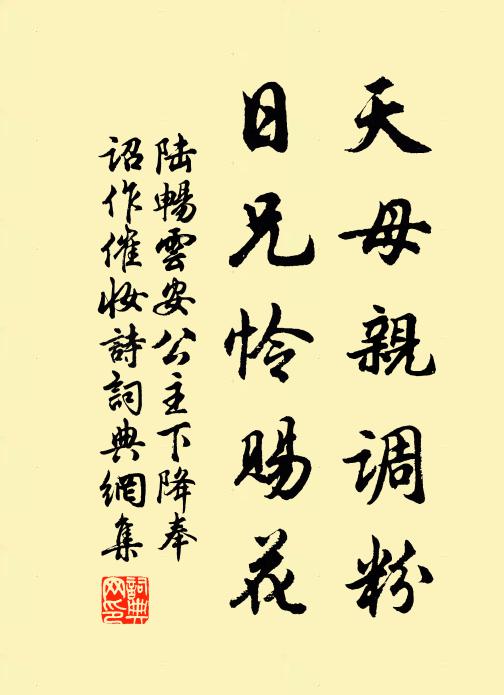 天母親调粉
日兄怜賜花
陆暢雲安公主下降奉
詔作催妝詩詞典網集
詞典網印